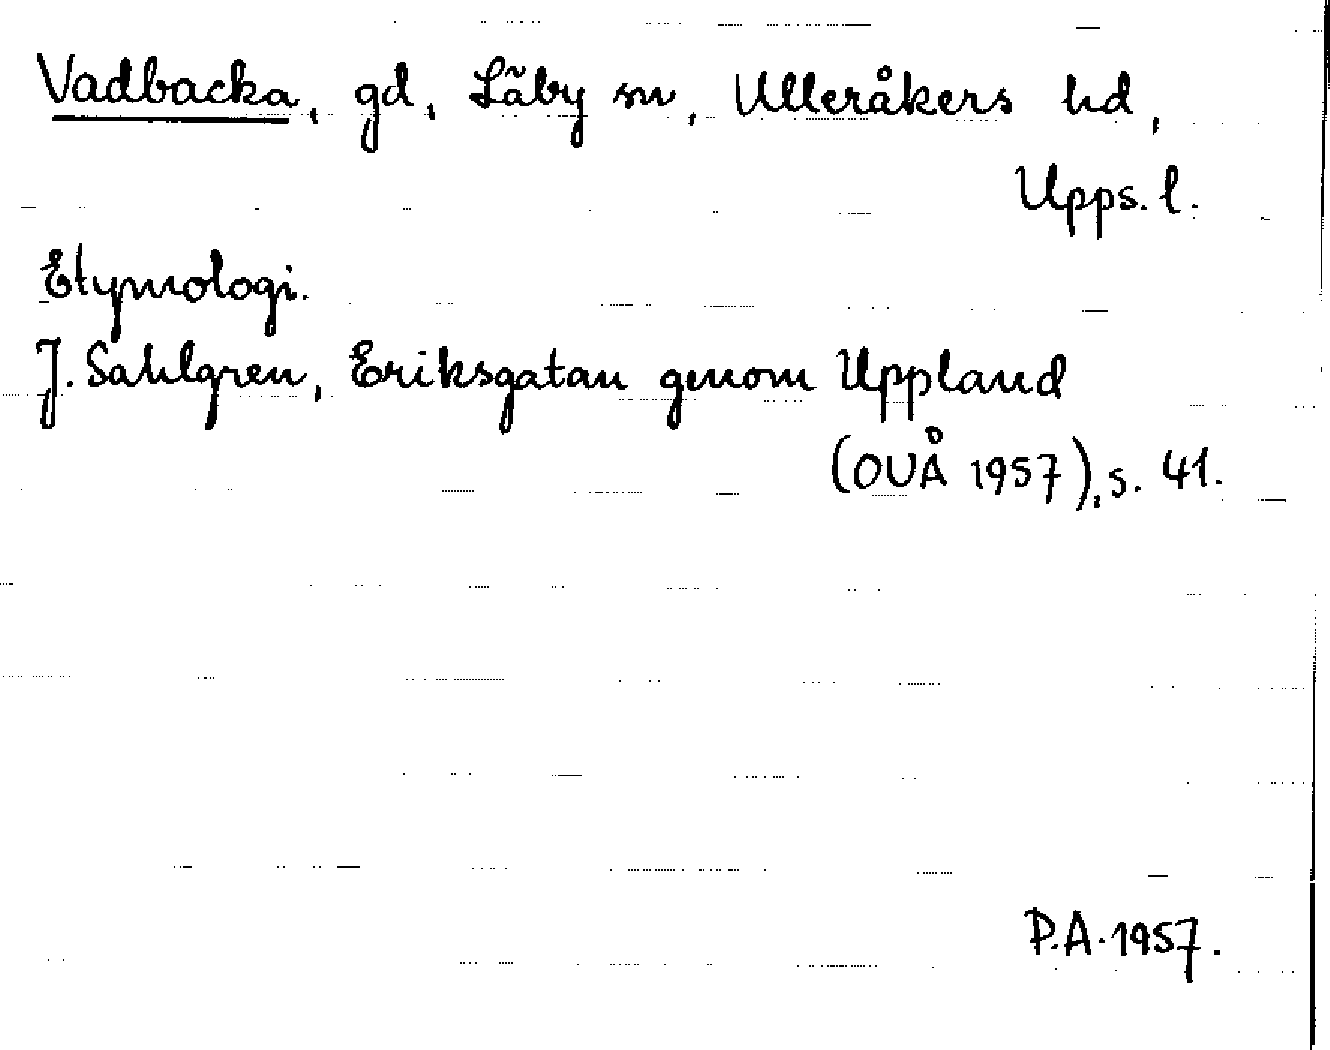 Vadbacka, gd, Läby sn, Ulleråkers hd,
Upps. l.
Etymologi.
J. Sahlgren, Eriksgatan genom Uppland
(OUÅ 1957), s. 41.
P.A. 1957.